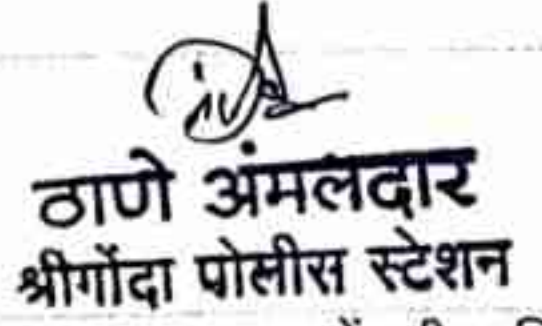 ठाणे अंमलदार
श्रीगोंदा पोलीस स्टेशन